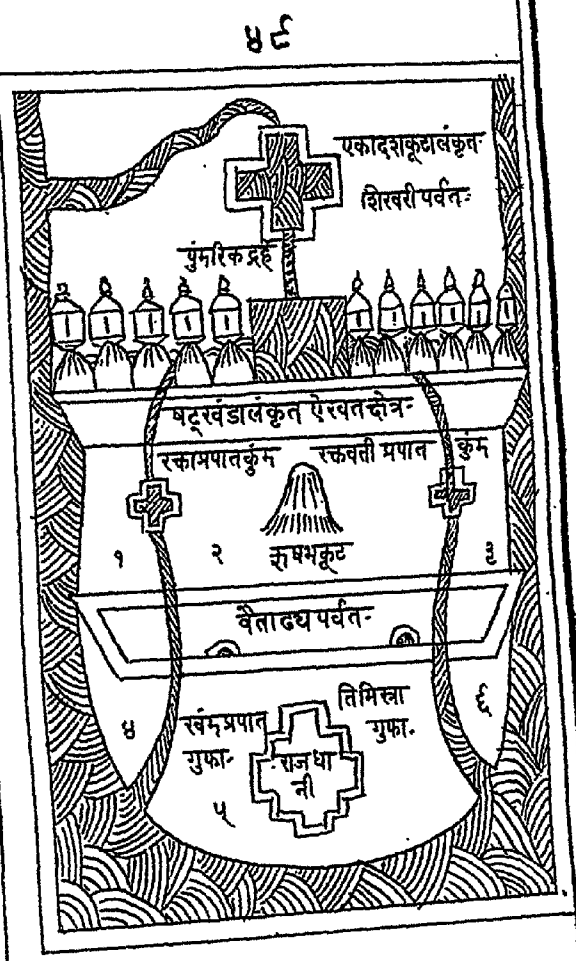 ४९
एकादशकूटालंकृत
शिखरी पर्वतः
पुंमरिक द्रह
षट्खंडालंकृत ऐरवत क्षेत्र-
रक्ताप्रपातकुंम रक्तवती प्रपात कुंम
१ २ ऋषभकूट ३
वैताढ्य पर्वत-
४ खंमप्रपात तिमिस्रा ६
गुफा- गुफा-
राजधा
नी
५